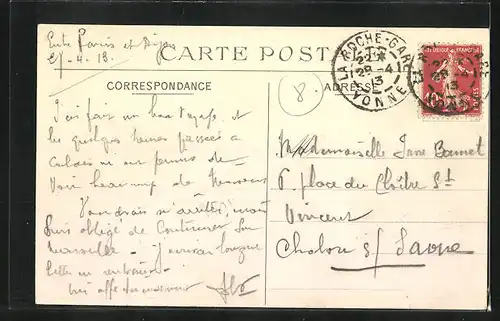 Entre Paris et Dijon
-4-13.
CARTE POSTALE
CORRESPONDANCE
ADRESSE
LA ROCHE-GARE
22
28-4
13
YONNE
8
J'ai fait un bon voyage et
les quelques heures passées à
de
voir beaucoup de
Voudrais m'arrêter, mais
suis obligé de continuer sur
Marseille - J'écrirai longue
lettre en
bien affectueusement
Mademoiselle Jane
6 place du Cloître St
Vincent
Chalon s/ Saone